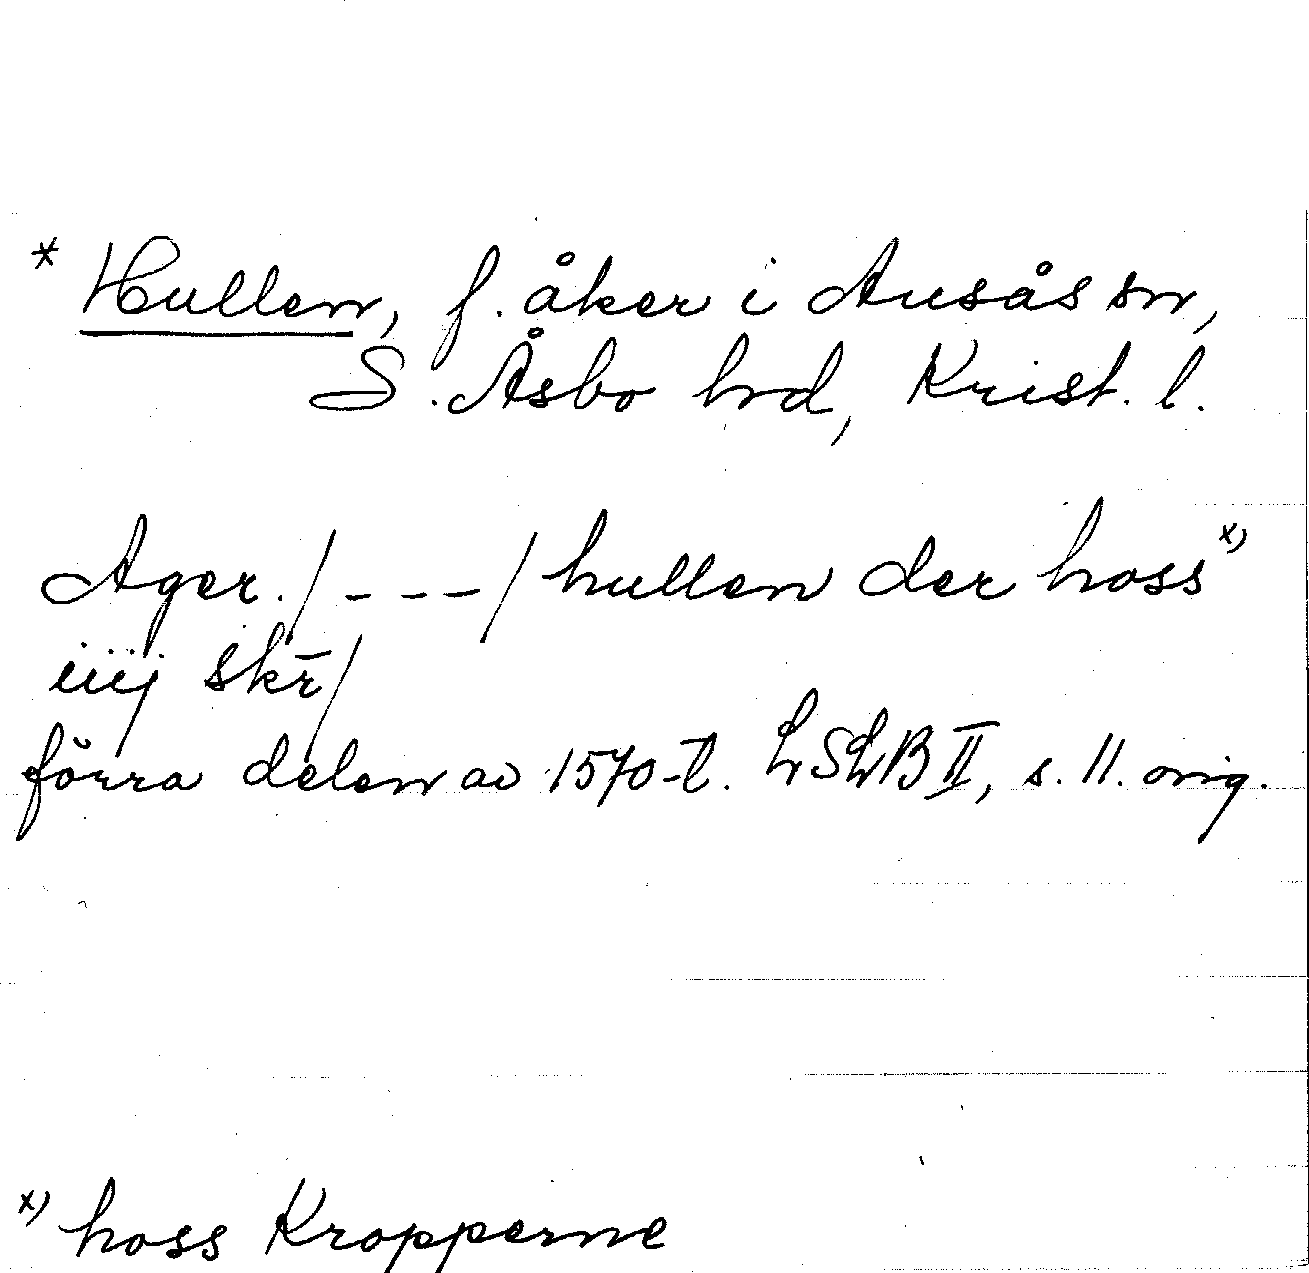 * Hullen, f. åker i Ausås sn,
S. Åsbo hd, Krist. l.
Ager. / - - - / hullen der hoss x)
iiij skr̄ /
förra delen av 1570-t. LSLB II, s. 11. orig.
x) hoss Kropperne